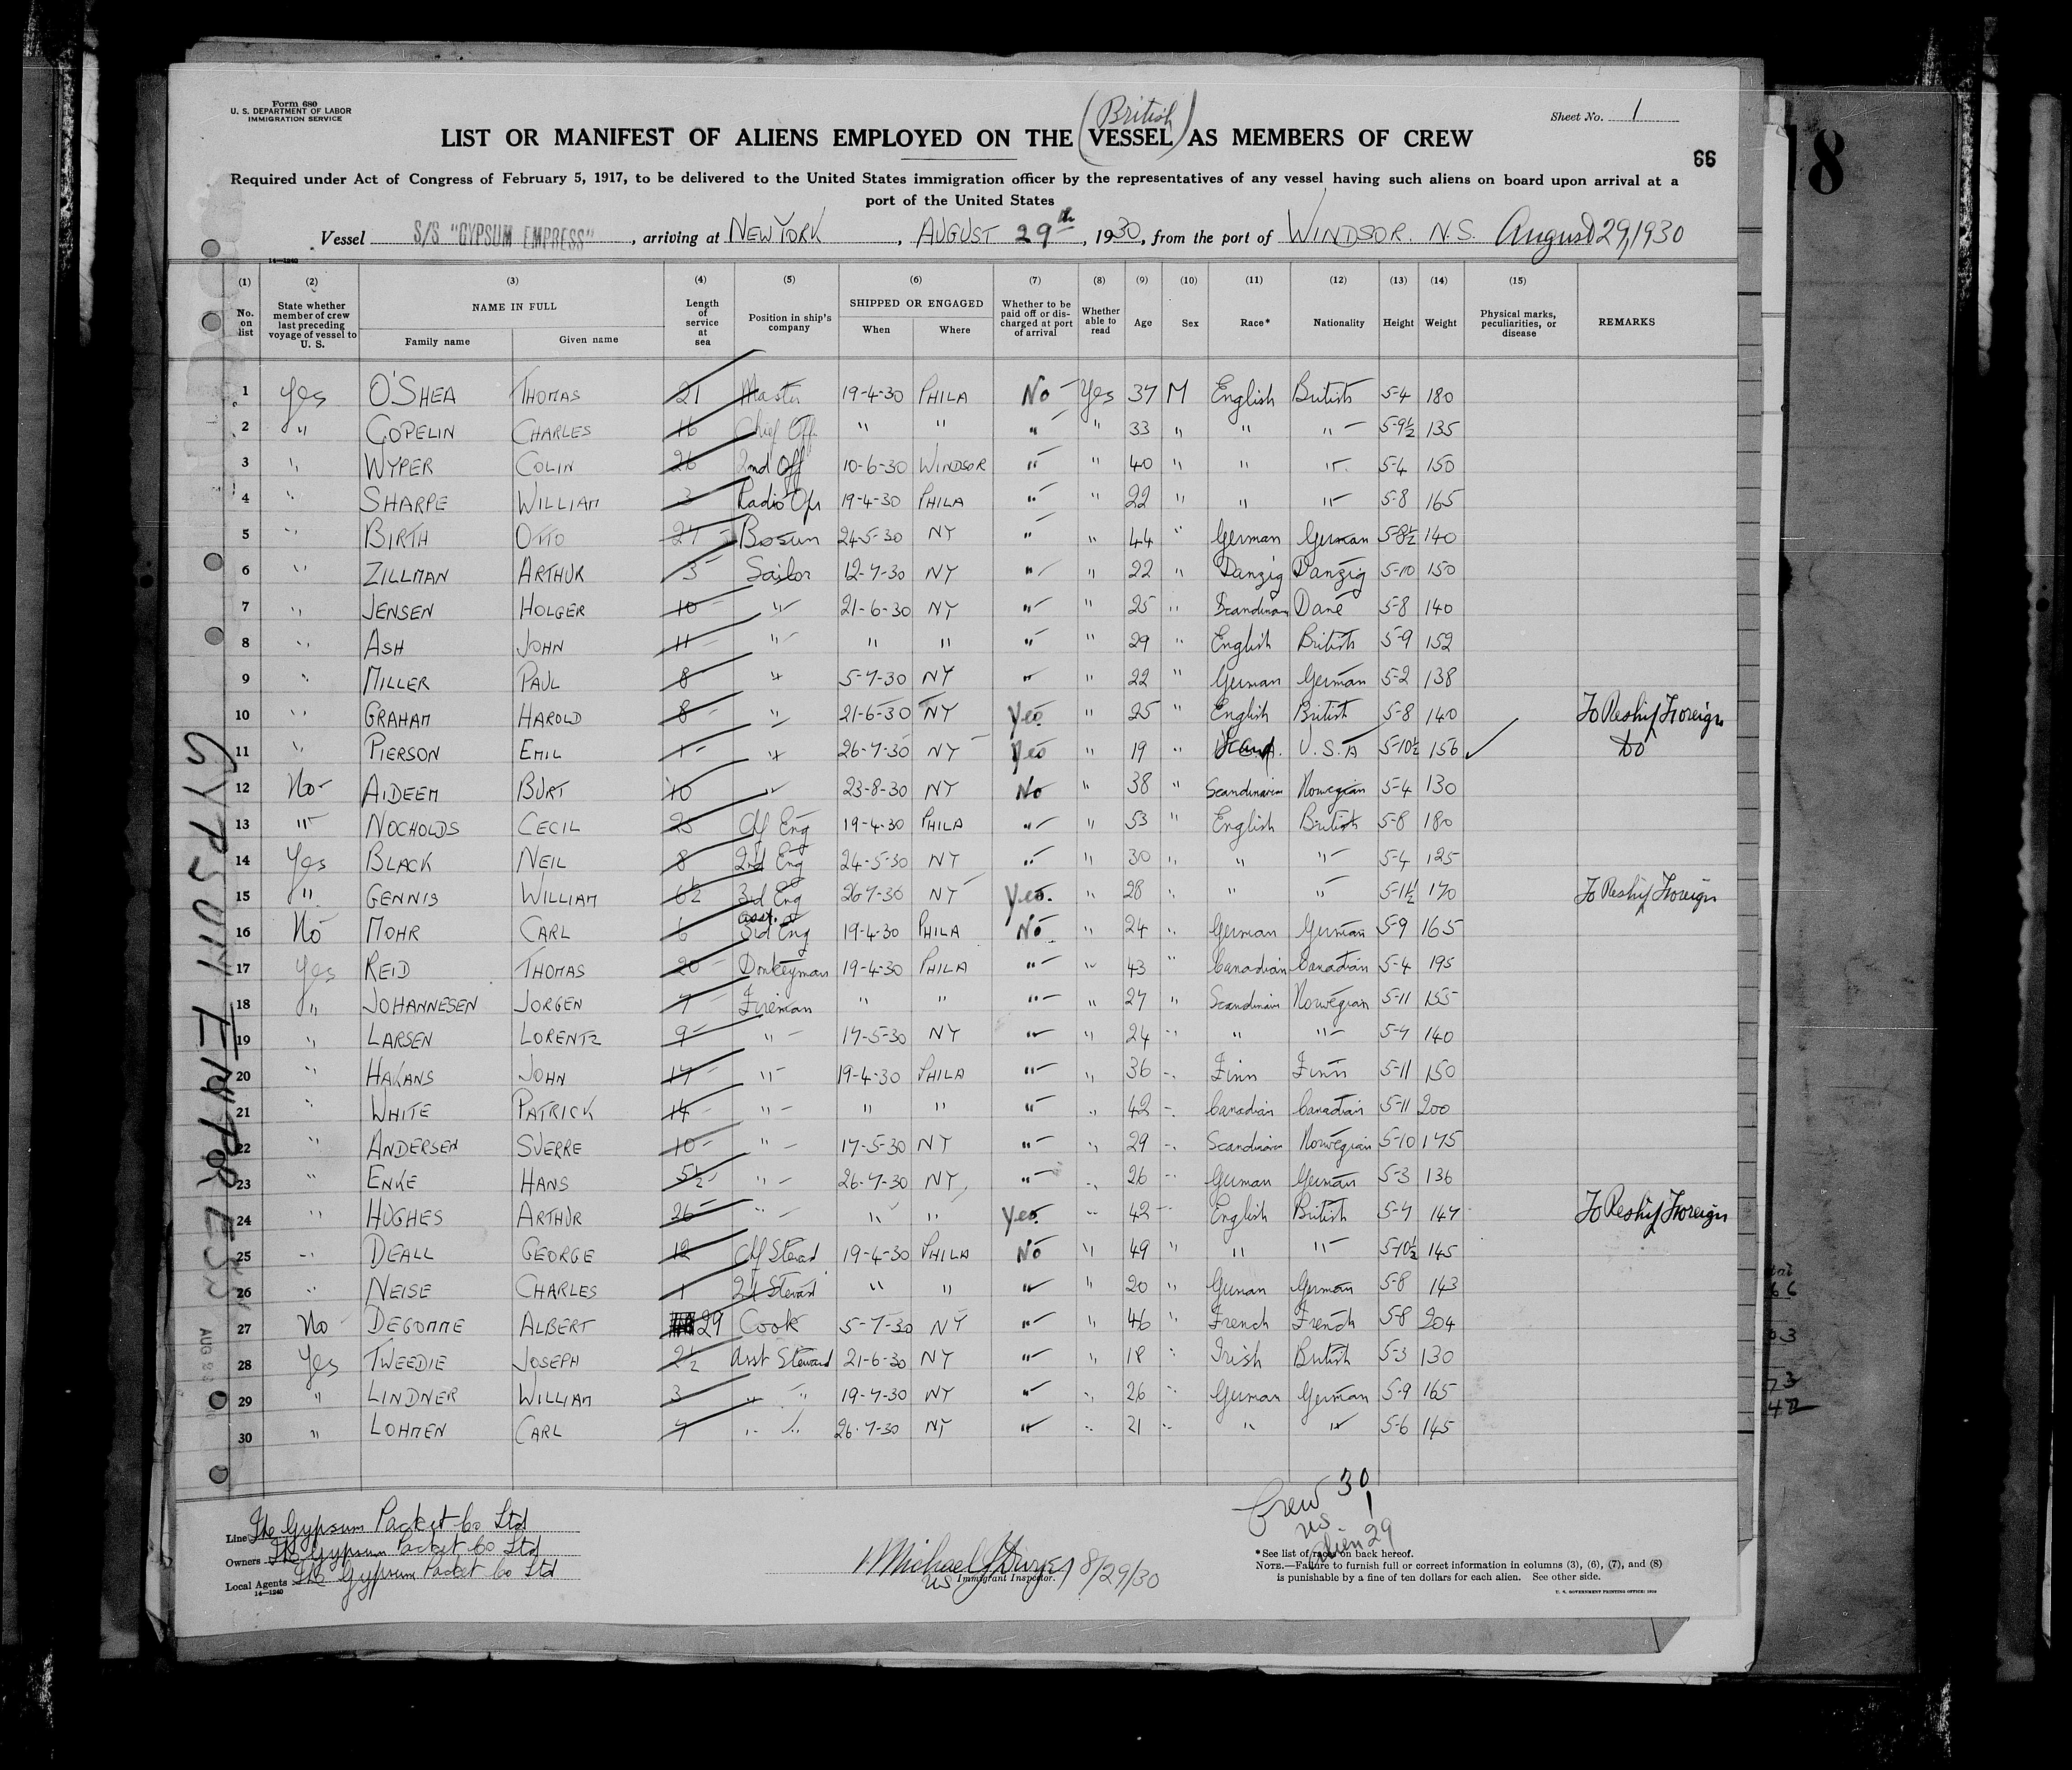 Form 680
U. S. DEPARTMENT OF LABOR
IMMIGRATION SERVICE
Sheet No. 1
(British)
LIST OR MANIFEST OF ALIENS EMPLOYED ON THE VESSEL AS MEMBERS OF CREW
66
18
Required under Act of Congress of February 5, 1917, to be delivered to the United States immigration officer by the representatives of any vessel having such aliens on board upon arrival at a
port of the United States
Vessel S/S "GYPSUM EMPRESS", arriving at NEW YORK, AUGUST 29th, 1930, from the port of WINDSOR. N.S. August 29, 1930
14—1240
(1) (2) (3) (4) (5) (6) (7) (8) (9) (10) (11) (12) (13) (14) (15)
No. on list State whether member of crew last preceding voyage of vessel to U. S. NAME IN FULL Family name Given name Length of service at sea Position in ship's company SHIPPED OR ENGAGED When Where Whether to be paid off or discharged at port of arrival Whether able to read Age Sex Race* Nationality Height Weight Physical marks, peculiarities, or disease REMARKS
1 Yes O'SHEA THOMAS 21 Master 19-4-30 PHILA No Yes 37 M English British 5-4 180
2 " COPELIN CHARLES 16 Chief Off " " " " 33 " " " 5-9½ 135
3 " WYPER COLIN 26 2nd Off 10-6-30 WINDSOR " " 40 " " " 5-4 150
4 " SHARPE WILLIAM 3 Radio Opr 19-4-30 PHILA " " 22 " " " 5-8 165
5 " BIRTH OTTO 27 Bosun 24-5-30 NY " " 44 " German German 5-8½ 140
6 " ZILLMAN ARTHUR 5 Sailor 12-7-30 NY " " 22 " Danzig Danzig 5-10 150
7 " JENSEN HOLGER 10 " 21-6-30 NY " " 25 " Scandinavian Dane 5-8 140
8 " ASH JOHN 11 " " " " " 29 " English British 5-9 152
9 " MILLER PAUL 8 " 5-7-30 NY " " 22 " German German 5-2 138
10 " GRAHAM HAROLD 8 " 21-6-30 NY Yes " 25 " English British 5-8 140 To Reship Foreign
11 " PIERSON EMIL 1 " 26-7-30 NY Yes " 19 " Scand. U.S.A 5-10½ 156 ✓ do
12 No AIDEEM BURT 10 " 23-8-30 NY No " 38 " Scandinavian Norwegian 5-4 130
13 " NOCHOLDS CECIL 25 Chf Eng 19-4-30 PHILA " " 53 " English British 5-8 180
14 Yes BLACK NEIL 8 2nd Eng 24-5-30 NY " " 30 " " " 5-4 125
15 " GENNIS WILLIAM 6½ 3rd Eng 26-7-30 NY Yes. " 28 " " " 5-1½ 170 To Reship Foreign
16 No MOHR CARL 6 asst. 3rd Eng 19-4-30 PHILA No " 24 " German German 5-9 165
17 Yes REID THOMAS 20 Donkeyman 19-4-30 PHILA " " 43 " Canadian Canadian 5-4 195
18 " JOHANNESEN JORGEN 7 Fireman " " " " 27 " Scandinavian Norwegian 5-11 155
19 " LARSEN LORENTZ 9 " 17-5-30 NY " " 24 " " " 5-7 140
20 " HAKANS JOHN 17 " 19-4-30 PHILA " " 36 " Finn Finn 5-11 150
21 " WHITE PATRICK 14 " " " " " 42 " Canadian Canadian 5-11 200
22 " ANDERSEN SVERRE 10 " 17-5-30 NY " " 29 " Scandinavian Norwegian 5-10 175
23 " ENKE HANS 5½ " 26-7-30 NY " " 26 " German German 5-3 136
24 " HUGHES ARTHUR 26 " " " Yes. " 42 " English British 5-7 147 To Reship Foreign
25 " DEALL GEORGE 12 Chf Steward 19-4-30 PHILA No " 49 " " " 5-10½ 145
26 " NEISE CHARLES 1 2d Steward " " " " 20 " German German 5-8 143
27 No DEGOMME ALBERT 29 Cook 5-7-30 NY " " 46 " French French 5-8 204
28 Yes TWEEDIE JOSEPH 2½ Asst Steward 21-6-30 NY " " 18 " Irish British 5-3 130
29 " LINDNER WILLIAM 3 " " 19-7-30 NY " " 26 " German German 5-9 165
30 " LOHMEN CARL 7 " " 26-7-30 NY " " 21 " " " 5-6 145
GYPSUM EMPRESS
Crew 30
US 1
alien 29
Line The Gypsum Packet Co Ltd
Owners The Gypsum Packet Co Ltd
Local Agents The Gypsum Packet Co Ltd
14—1240
Michael J Dwyer 8/29/30
US Immigrant Inspector.
*See list of races on back hereof.
NOTE.—Failure to furnish full or correct information in columns (3), (6), (7), and (8)
is punishable by a fine of ten dollars for each alien. See other side.
U. S. GOVERNMENT PRINTING OFFICE: 1930